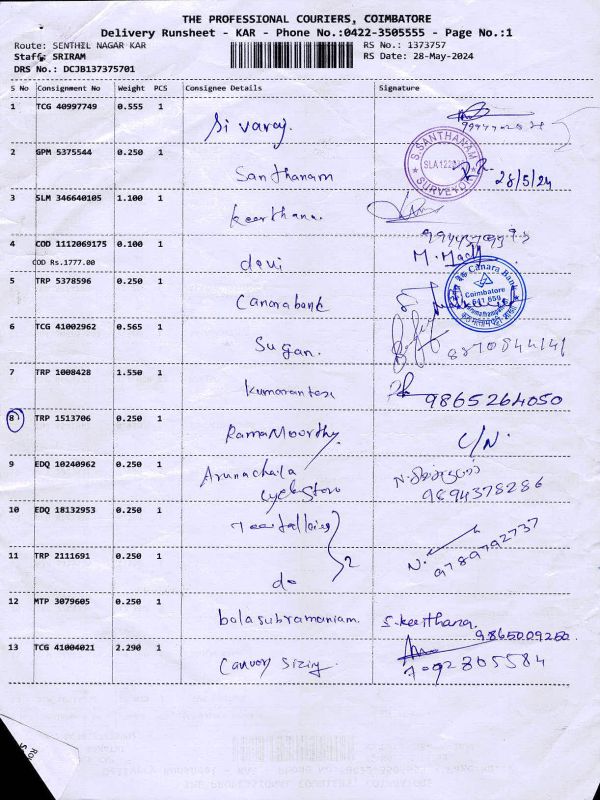 THE PROFESSIONAL COURIERS, COIMBATORE
Delivery Runsheet - KAR - Phone No.:0422-3505555 - Page No.:1
Route: SENTHIL NAGAR KAR RS No.: 1373757
Staff: SRIRAM RS Date: 28-May-2024
DRS No.: DCJB137375701
S No Consignment No Weight PCS Consignee Details Signature
1 TCG 40997749 0.555 1 Sivaraj.
2 GPM 5375544 0.250 1 Santhanam S.SANTHANAM SURVEYOR 28/5/24
3 SLM 346640105 1.100 1 keerthana.
4 COD 1112069175 0.100 1 devi
COD Rs.1777.00
5 TRP 5378596 0.250 1 Canarabank Canara Bank Coimbatore
6 TCG 41002962 0.565 1 Sugan. 8870844141
7 TRP 1008428 1.550 1 9865264050
8 TRP 1513706 0.250 1 RamaMoorthy. C/N.
9 EDQ 10240962 0.250 1 Arunachala 9894378286
10 EDQ 18132953 0.250 1
11 TRP 2111691 0.250 1 do 2 N. 9789792737
12 MTP 3079605 0.250 1 balasubramaniam. S.keerthana.
9865009250
13 TCG 41004021 2.290 1